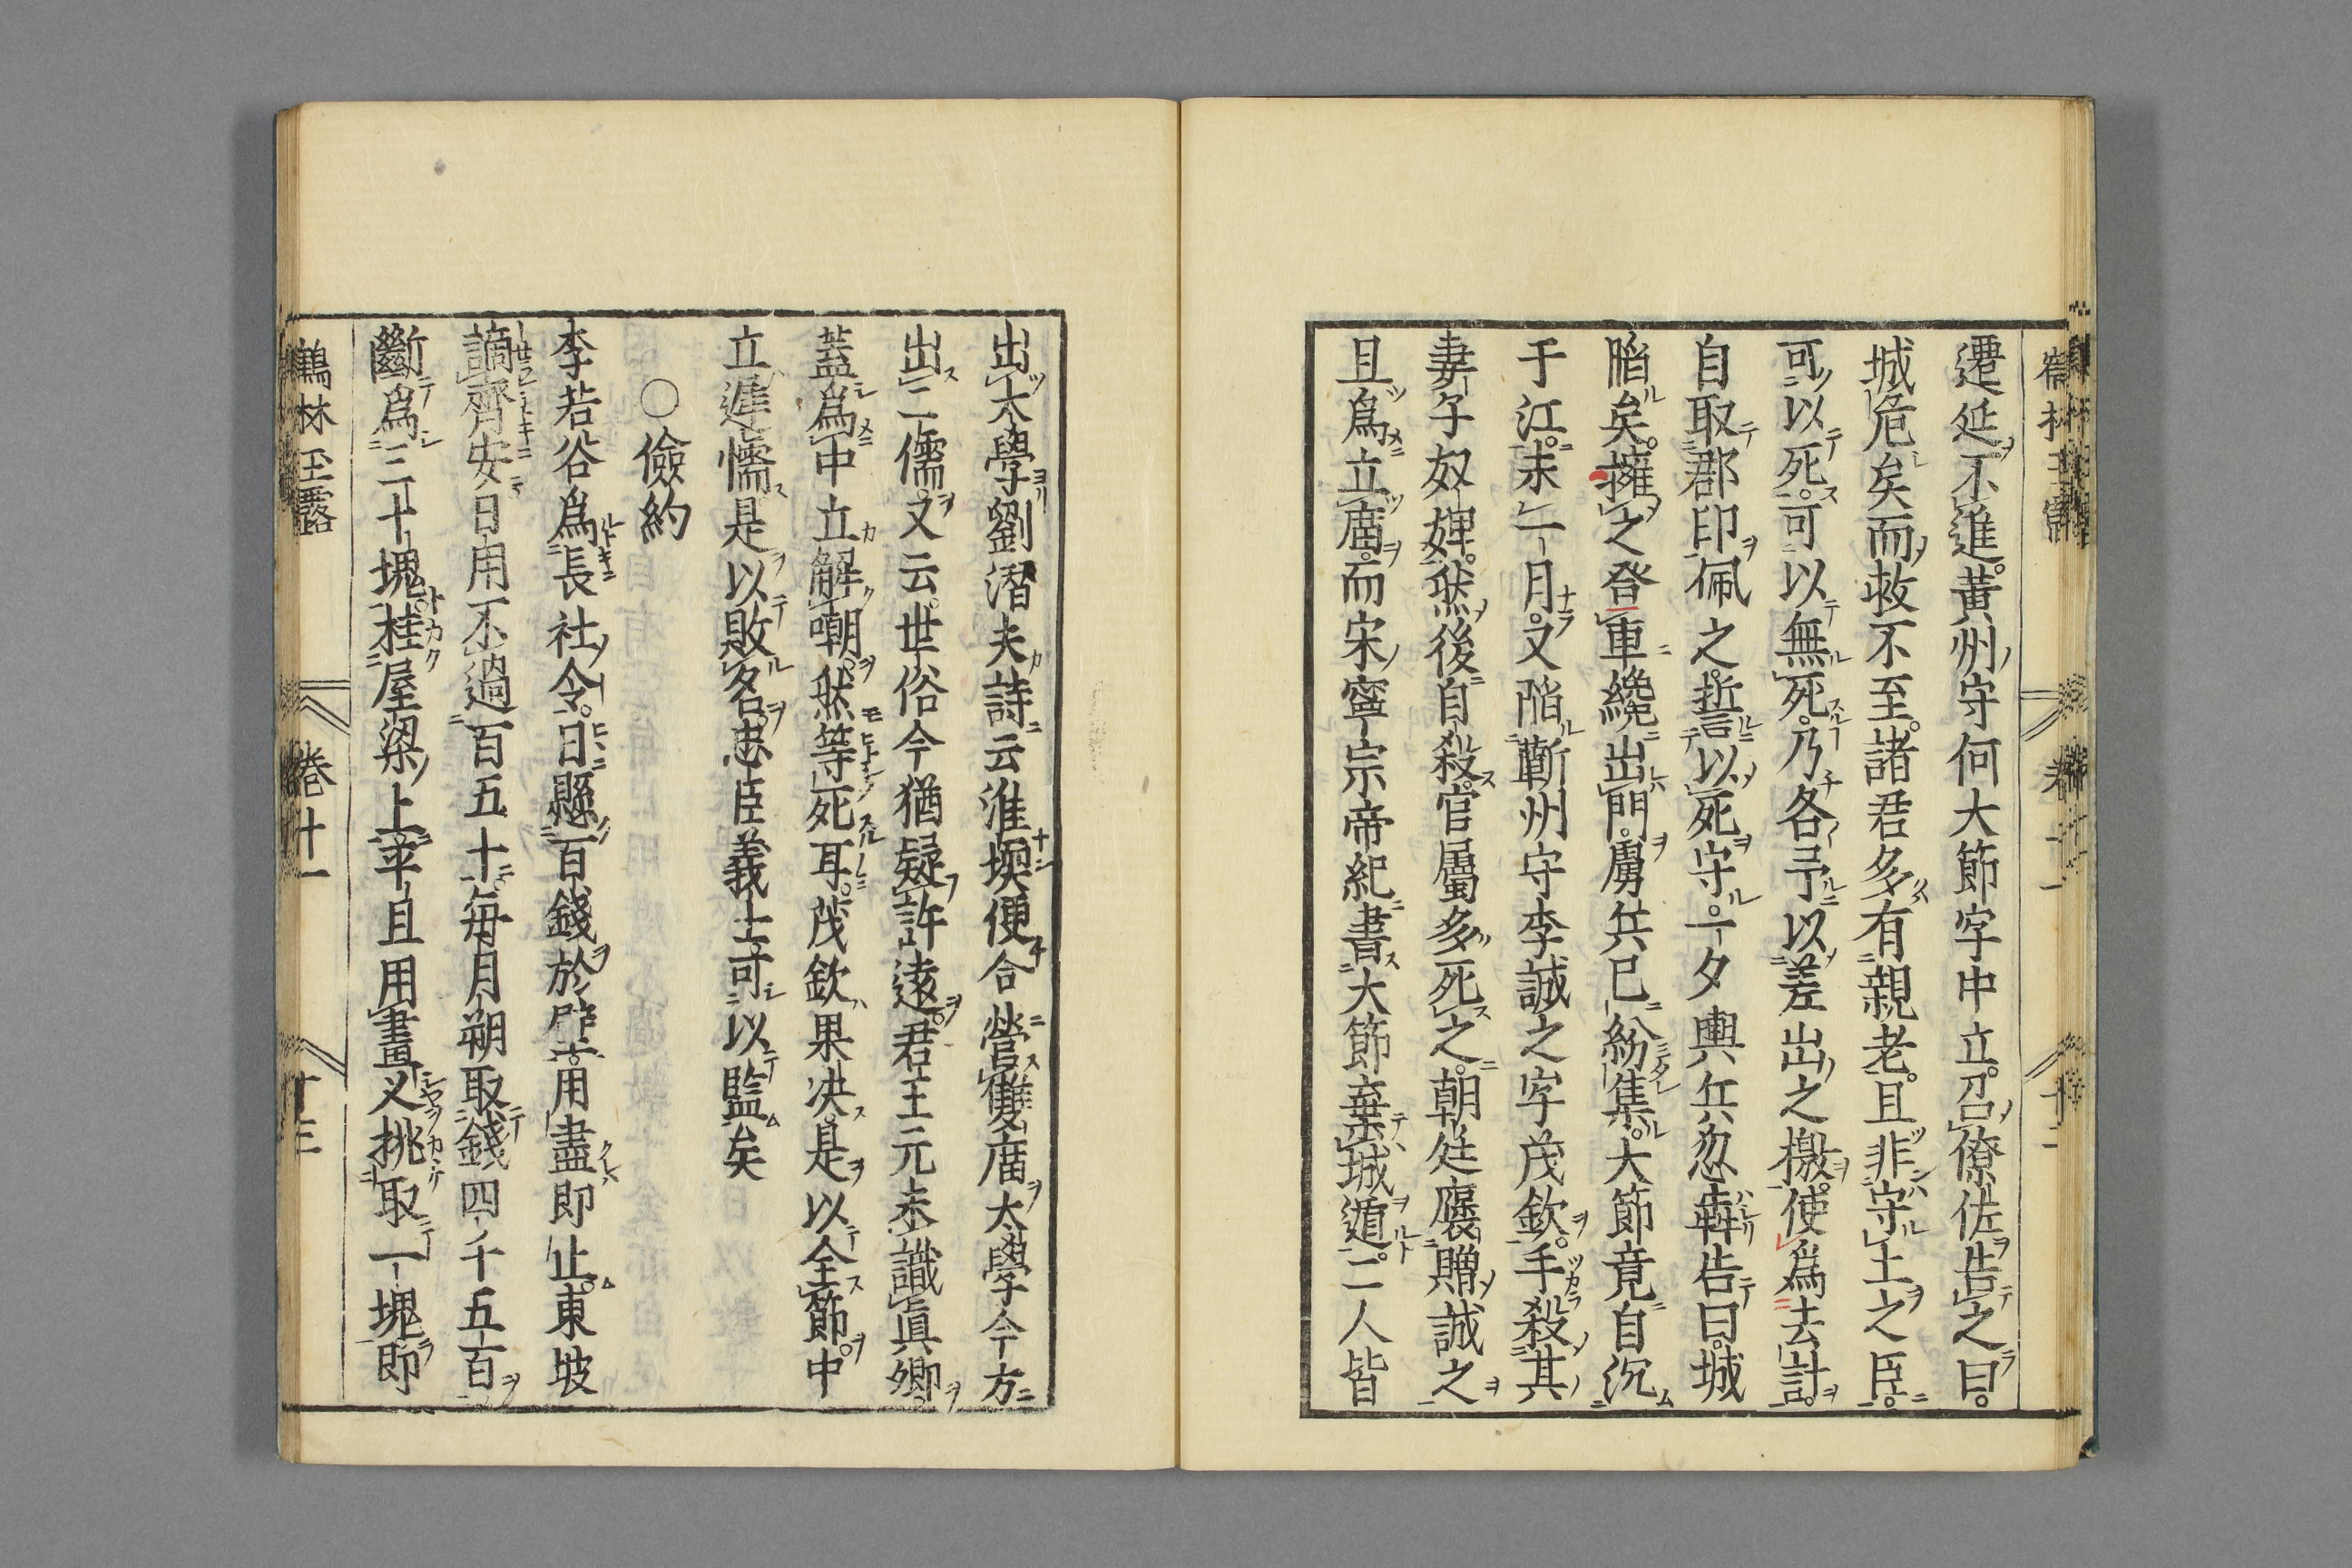 遷延不進黃州守何大節字中立召僚佐告之曰
城危矣而救不至諸君多有親老且非守土之臣
可以死可以無死乃各予以差出之檄使爲去計
自取郡印佩之誓以死守一夕輿兵忽奔告曰城
陷矣擁之登車纔出門虜兵已紛集大節竟自沉
于江未一月又陷蘄州守李誠之字茂欽手殺其
妻子奴婢然後自殺官屬多死之朝廷褒贈誠之
且爲立廟而宋寧宗帝紀書大節棄城遁二人皆
出太學劉潛夫詩云淮堧便合營雙廟太學今方
出二儒又云世俗今猶疑許遠君王元未識眞卿
蓋爲中立解嘲然等死耳茂欽果决是以全節中
立遲懦是以敗名忠臣義士可以監矣
○儉約
李若谷爲長社令日懸百錢於壁用盡即止東坡
謫齊安日用不過百五十每月朔取錢四千五百
斷爲三十塊挂屋梁上平旦用畫叉挑取一塊即
鶴林玉露 卷十一 十三